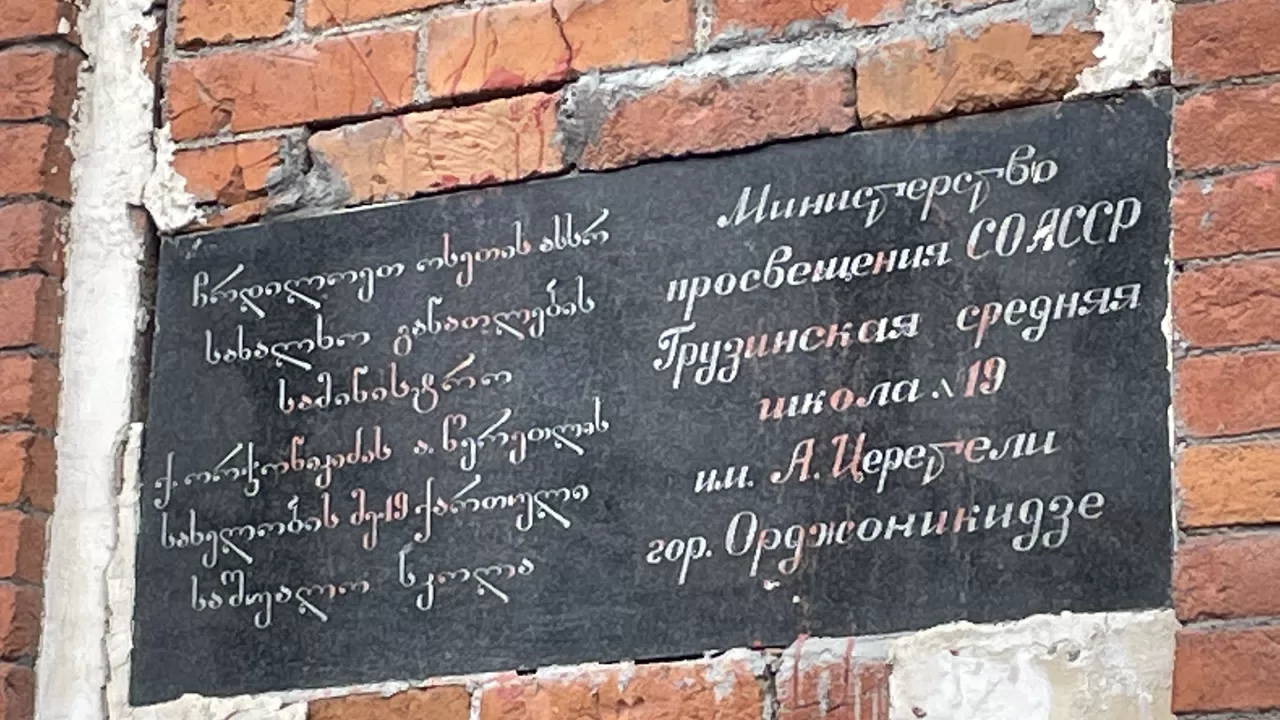 ჩრდილოეთ ოსეთის ასსრ
სახალხო განათლების
სამინისტრო
ქ. ორჯონიკიძის ა. წერეთლის
სახელობის მე-19 ქართული
საშუალო სკოლა
Министерство
просвещения СОАССР
Грузинская средняя
школа №19
им. А. Церетели
гор. Орджоникидзе